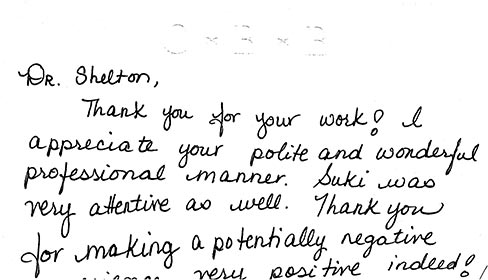 Dr. Shelton,
Thank you for your work! I
appreciate your polite and wonderful
professional manner. Suki was
very attentive as well. Thank you
for making a potentially negative
very positive indeed!